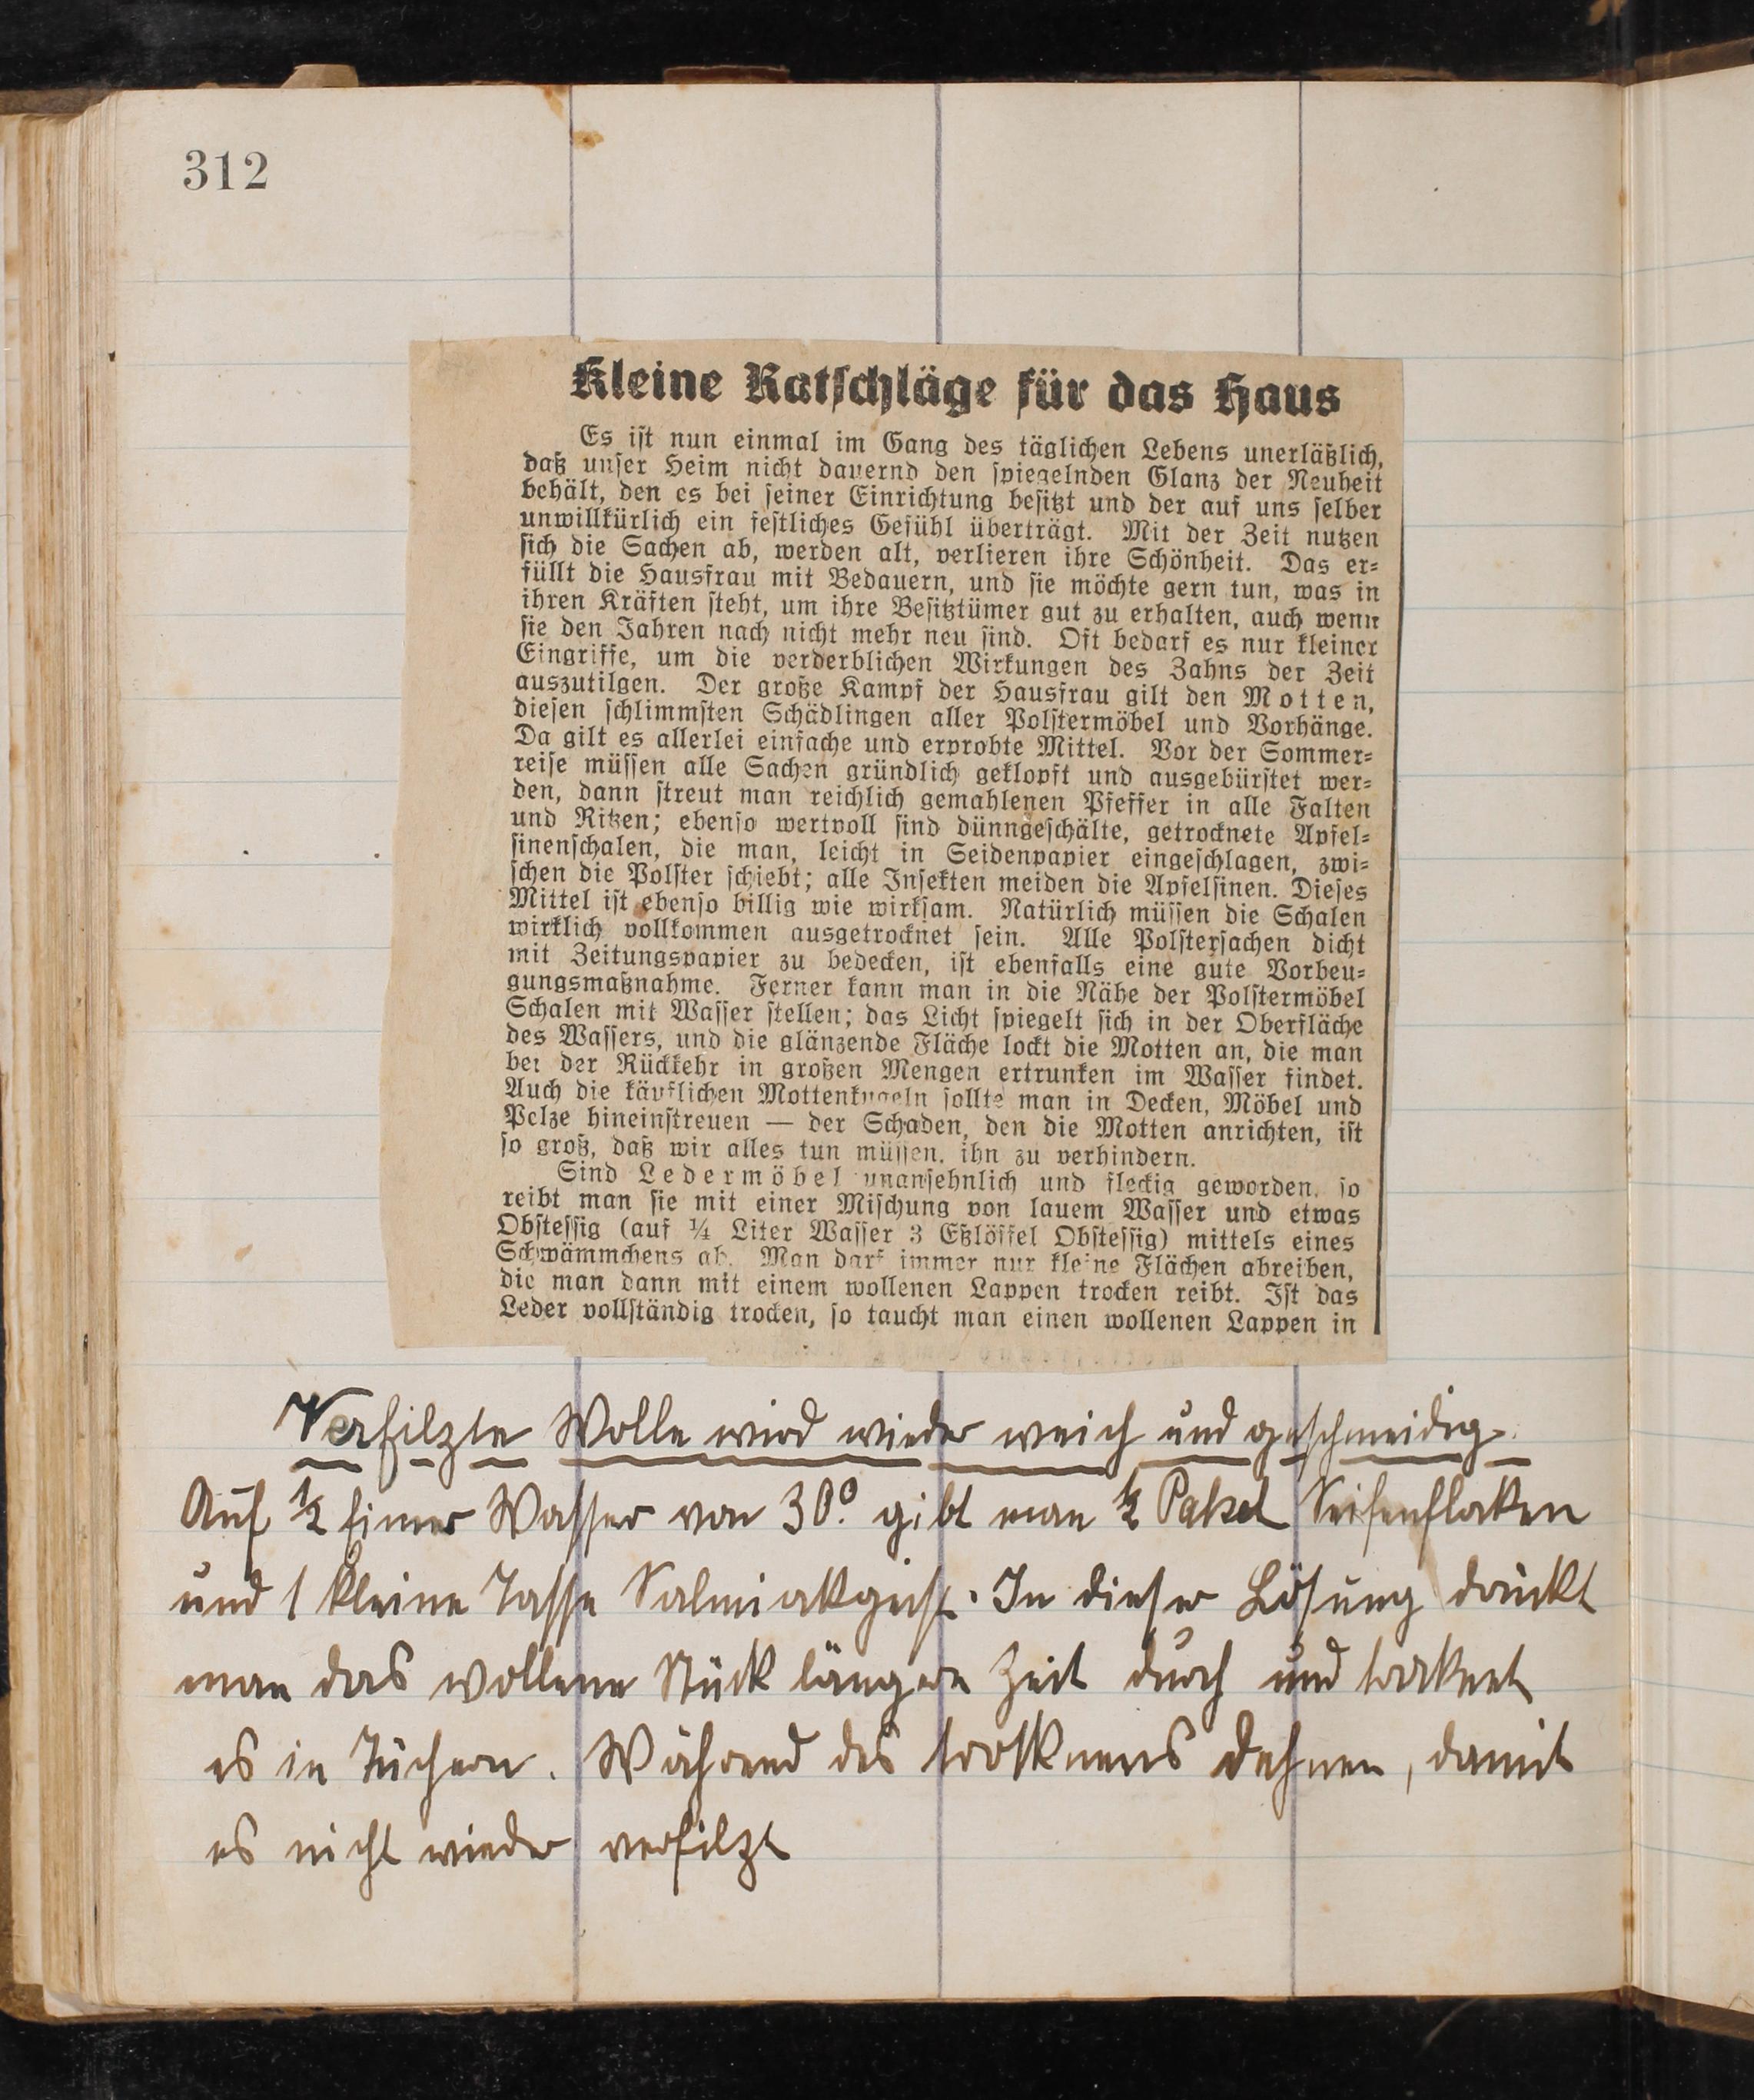 312
Kleine Ratschläge für das Haus
Es ist nun einmal im Gang des täglichen Lebens unerläßlich,
daß unser Heim nicht dauernd den spiegelnden Glanz der Neuheit
behält, den es bei seiner Einrichtung besitzt und der auf uns selber
unwillkürlich ein festliches Gefühl überträgt. Mit der Zeit nutzen
sich die Sachen ab, werden alt, verlieren ihre Schönheit. Das er-
füllt die Hausfrau mit Bedauern, und sie möchte gern tun, was in
ihren Kräften steht, um ihre Besitztümer gut zu erhalten, auch wenn
sie den Jahren nach nicht mehr neu sind. Oft bedarf es nur kleiner
Eingriffe, um die verderblichen Wirkungen des Zahns der Zeit
auszutilgen. Der große Kampf der Hausfrau gilt den Motten,
diesen schlimmsten Schädlingen aller Polstermöbel und Vorhänge.
Da gilt es allerlei einfache und erprobte Mittel. Vor der Sommer-
reise müssen alle Sachen gründlich geklopft und ausgebürstet wer-
den, dann streut man reichlich gemahlenen Pfeffer in alle Falten
und Ritzen; ebenso wertvoll sind dünngeschälte, getrocknete Apfel-
sinenschalen, die man, leicht in Seidenpapier eingeschlagen, zwi-
schen die Polster schiebt; alle Insekten meiden die Apfelsinen. Dieses
Mittel ist ebenso billig wie wirksam. Natürlich müssen die Schalen
wirklich vollkommen ausgetrocknet sein. Alle Polstersachen dicht
mit Zeitungspapier zu bedecken, ist ebenfalls eine gute Vorbeu-
gungsmaßnahme. Ferner kann man in die Nähe der Polstermöbel
Schalen mit Wasser stellen; das Licht spiegelt sich in der Oberfläche
des Wassers, und die glänzende Fläche lockt die Motten an, die man
bei der Rückkehr in großen Mengen ertrunken im Wasser findet.
Auch die käuflichen Mottenkugeln sollte man in Decken, Möbel und
Pelze hineinstreuen — der Schaden, den die Motten anrichten, ist
so groß, daß wir alles tun müssen, ihn zu verhindern.
Sind Ledermöbel unansehnlich und fleckig geworden, so
reibt man sie mit einer Mischung von lauem Wasser und etwas
Obstessig (auf ¼ Liter Wasser 3 Eßlöffel Obstessig) mittels eines
Schwämmchens ab. Man darf immer nur kleine Flächen abreiben,
die man dann mit einem wollenen Lappen trocken reibt. Ist das
Leder vollständig trocken, so taucht man einen wollenen Lappen in
Verfilzte Wolle wird wieder weich und geschmeidig.
Auf ½ Eimer Wasser von 30° gibt man ½ Paket Seifenflocken
und 1 kleine Tasse Salmiakgeist. In dieser Lösung drückt
man das wollene Stück längere Zeit durch und trocknet
es in Tüchern. Während des trocknens dehnen, damit
es nicht wieder verfilzt